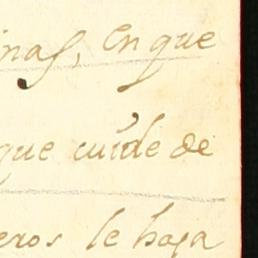 inas, en que
que cuide de
eros le haga